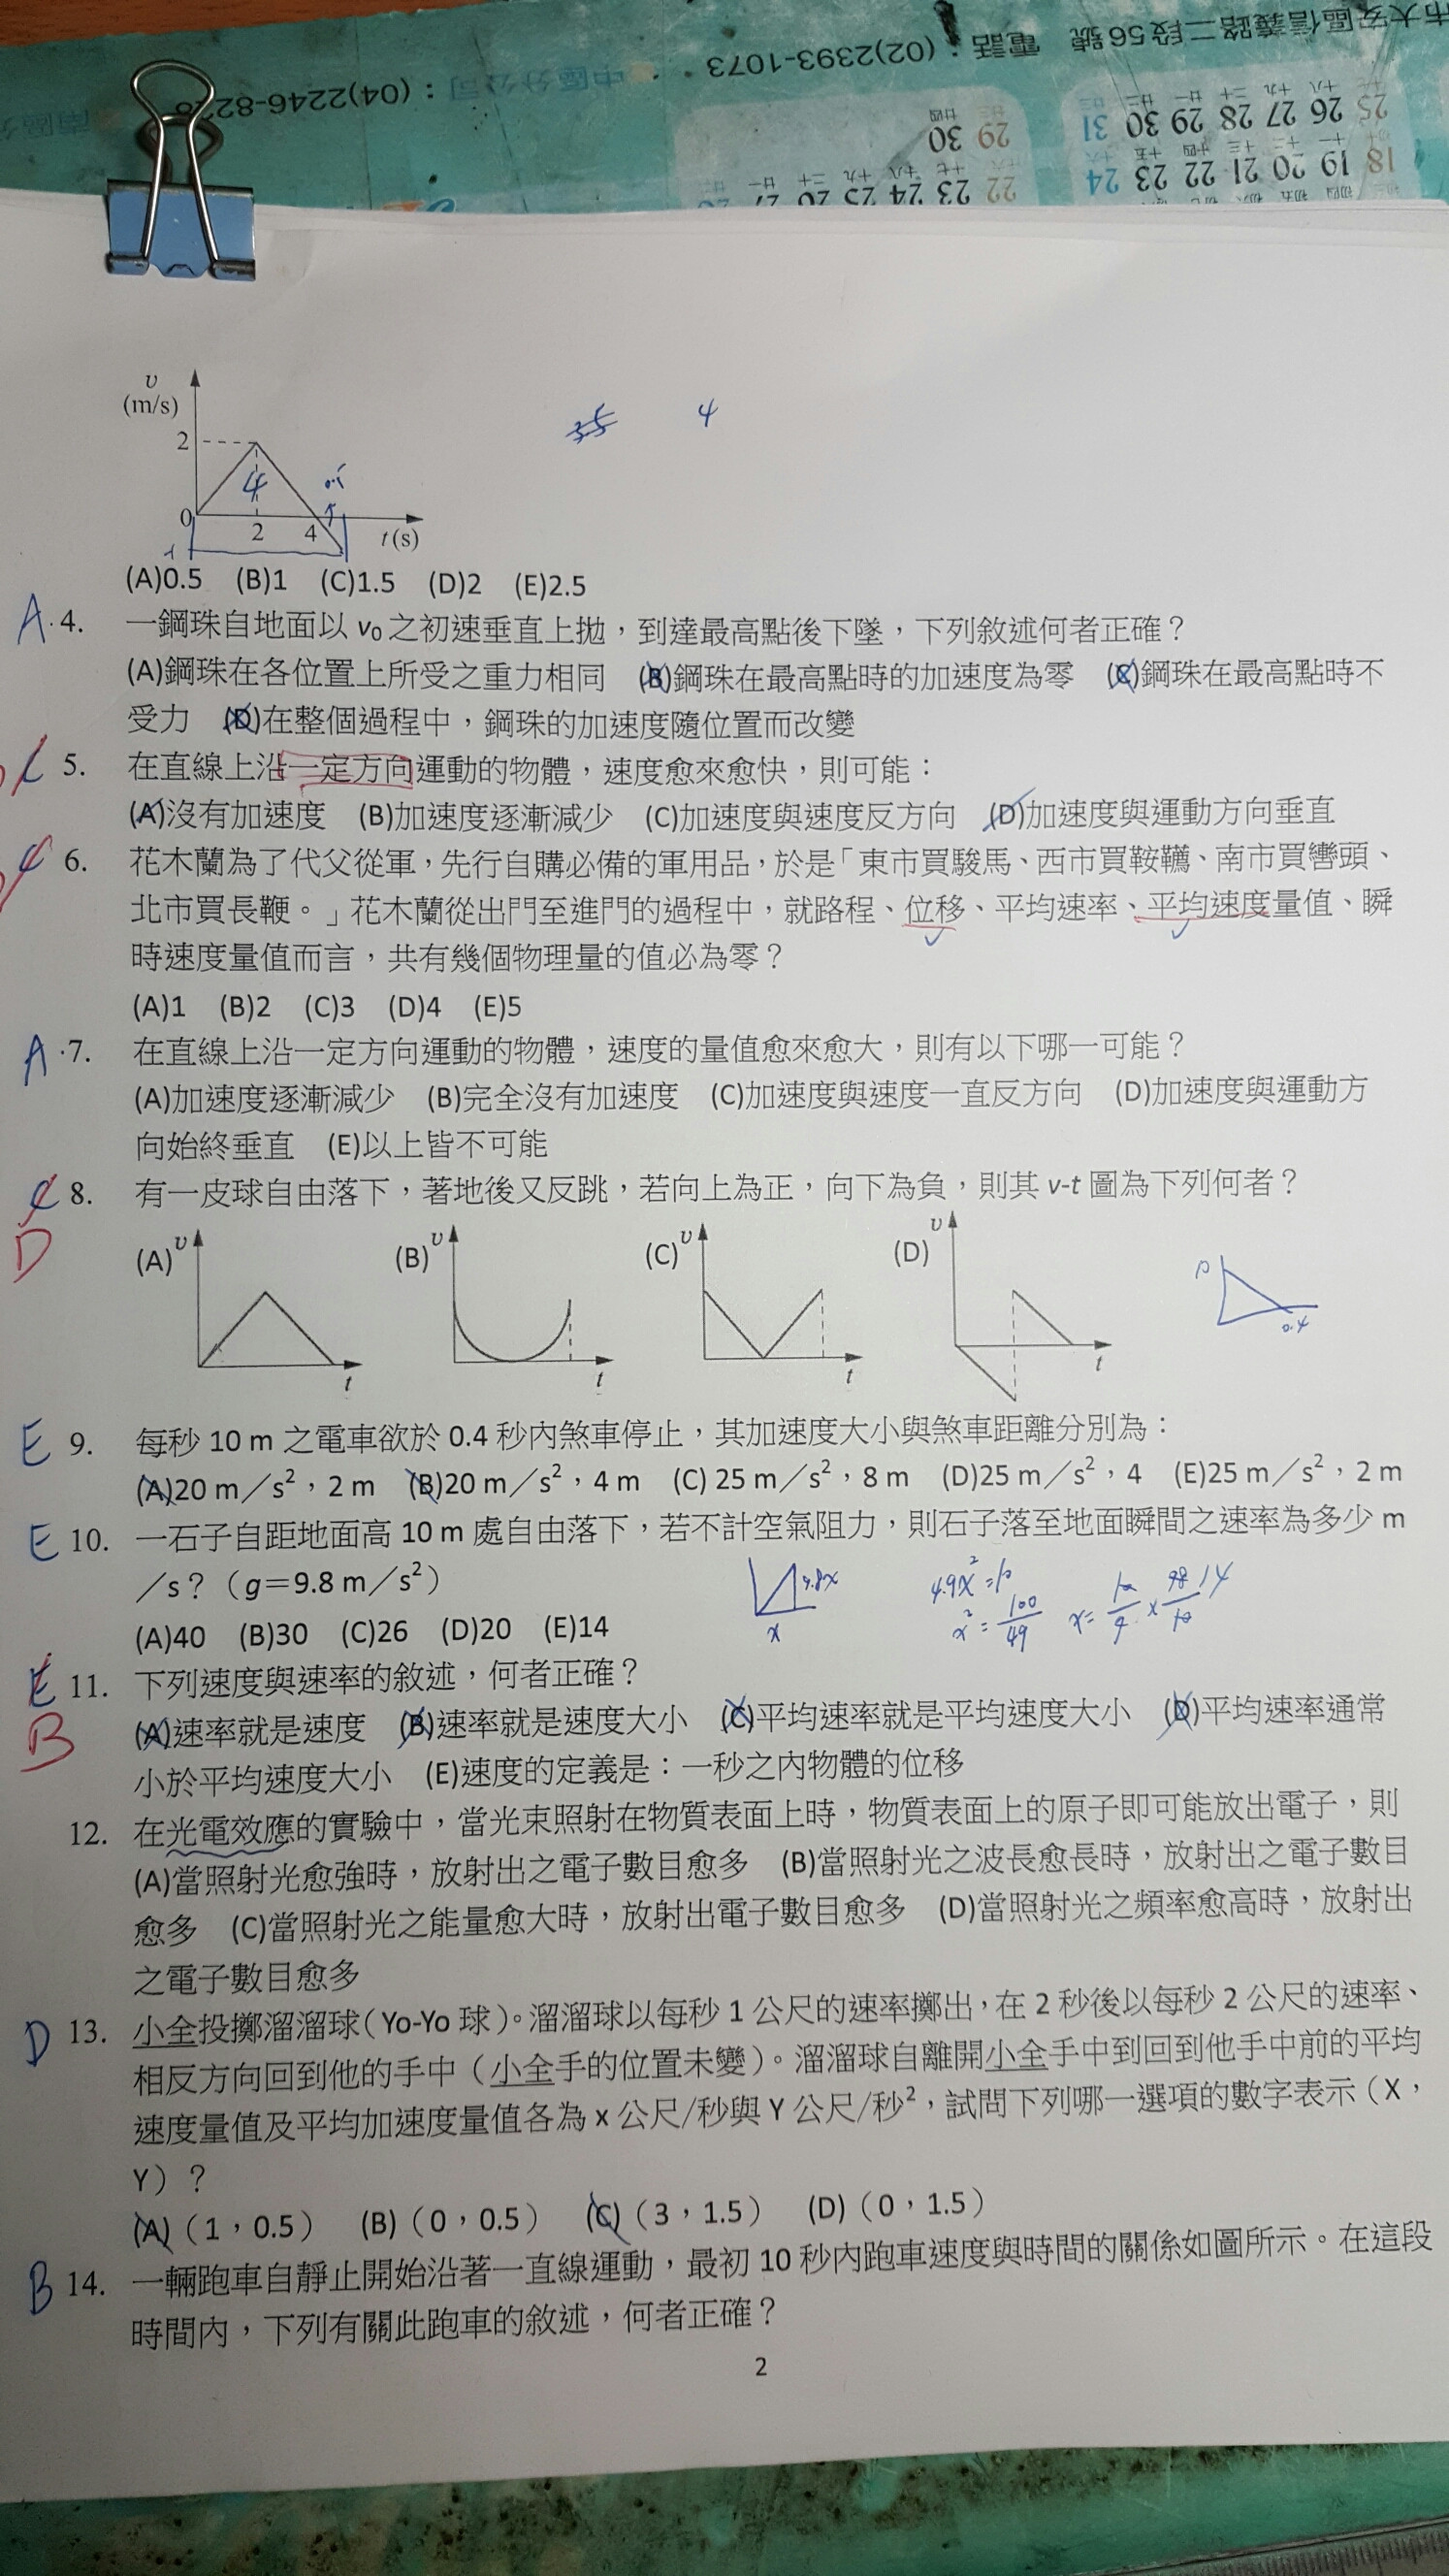 市大安區信義路二段56號 電話：(02)2393-1073
中區分公司：(04)2246-82
25 26 27 28 29 30 31
18 19 20 21 22 23 24
29 30
22 23 24 25 26 27 28
υ
(m/s)
2
4
0
2 4 t(s)
4
(A)0.5 (B)1 (C)1.5 (D)2 (E)2.5
A 4. 一鋼珠自地面以 v₀ 之初速垂直上拋，到達最高點後下墜，下列敘述何者正確？
(A)鋼珠在各位置上所受之重力相同 (B)鋼珠在最高點時的加速度為零 (C)鋼珠在最高點時不
受力 (D)在整個過程中，鋼珠的加速度隨位置而改變
5. 在直線上沿一定方向運動的物體，速度愈來愈快，則可能：
(A)沒有加速度 (B)加速度逐漸減少 (C)加速度與速度反方向 (D)加速度與運動方向垂直
6. 花木蘭為了代父從軍，先行自購必備的軍用品，於是「東市買駿馬、西市買鞍韉、南市買轡頭、
北市買長鞭。」花木蘭從出門至進門的過程中，就路程、位移、平均速率、平均速度量值、瞬
時速度量值而言，共有幾個物理量的值必為零？
(A)1 (B)2 (C)3 (D)4 (E)5
A 7. 在直線上沿一定方向運動的物體，速度的量值愈來愈大，則有以下哪一可能？
(A)加速度逐漸減少 (B)完全沒有加速度 (C)加速度與速度一直反方向 (D)加速度與運動方
向始終垂直 (E)以上皆不可能
8. 有一皮球自由落下，著地後又反跳，若向上為正，向下為負，則其 v-t 圖為下列何者？
D
(A) υ t (B) υ t (C) υ t (D) υ t
10
0.4
E 9. 每秒 10 m 之電車欲於 0.4 秒內煞車停止，其加速度大小與煞車距離分別為：
(A)20 m／s²，2 m (B)20 m／s²，4 m (C) 25 m／s²，8 m (D)25 m／s²，4 (E)25 m／s²，2 m
E 10. 一石子自距地面高 10 m 處自由落下，若不計空氣阻力，則石子落至地面瞬間之速率為多少 m
／s？（g＝9.8 m／s²）
9.8x
x
4.9x²=10
x²=100/49
(A)40 (B)30 (C)26 (D)20 (E)14
E 11. 下列速度與速率的敘述，何者正確？
B
(A)速率就是速度 (B)速率就是速度大小 (C)平均速率就是平均速度大小 (D)平均速率通常
小於平均速度大小 (E)速度的定義是：一秒之內物體的位移
12. 在光電效應的實驗中，當光束照射在物質表面上時，物質表面上的原子即可能放出電子，則
(A)當照射光愈強時，放射出之電子數目愈多 (B)當照射光之波長愈長時，放射出之電子數目
愈多 (C)當照射光之能量愈大時，放射出電子數目愈多 (D)當照射光之頻率愈高時，放射出
之電子數目愈多
D 13. 小全投擲溜溜球（Yo-Yo 球）。溜溜球以每秒 1 公尺的速率擲出，在 2 秒後以每秒 2 公尺的速率、
相反方向回到他的手中（小全手的位置未變）。溜溜球自離開小全手中到回到他手中前的平均
速度量值及平均加速度量值各為 x 公尺/秒與 Y 公尺/秒²，試問下列哪一選項的數字表示（X，
Y）？
(A)（1，0.5） (B)（0，0.5） (C)（3，1.5） (D)（0，1.5）
B 14. 一輛跑車自靜止開始沿著一直線運動，最初 10 秒內跑車速度與時間的關係如圖所示。在這段
時間內，下列有關此跑車的敘述，何者正確？
2